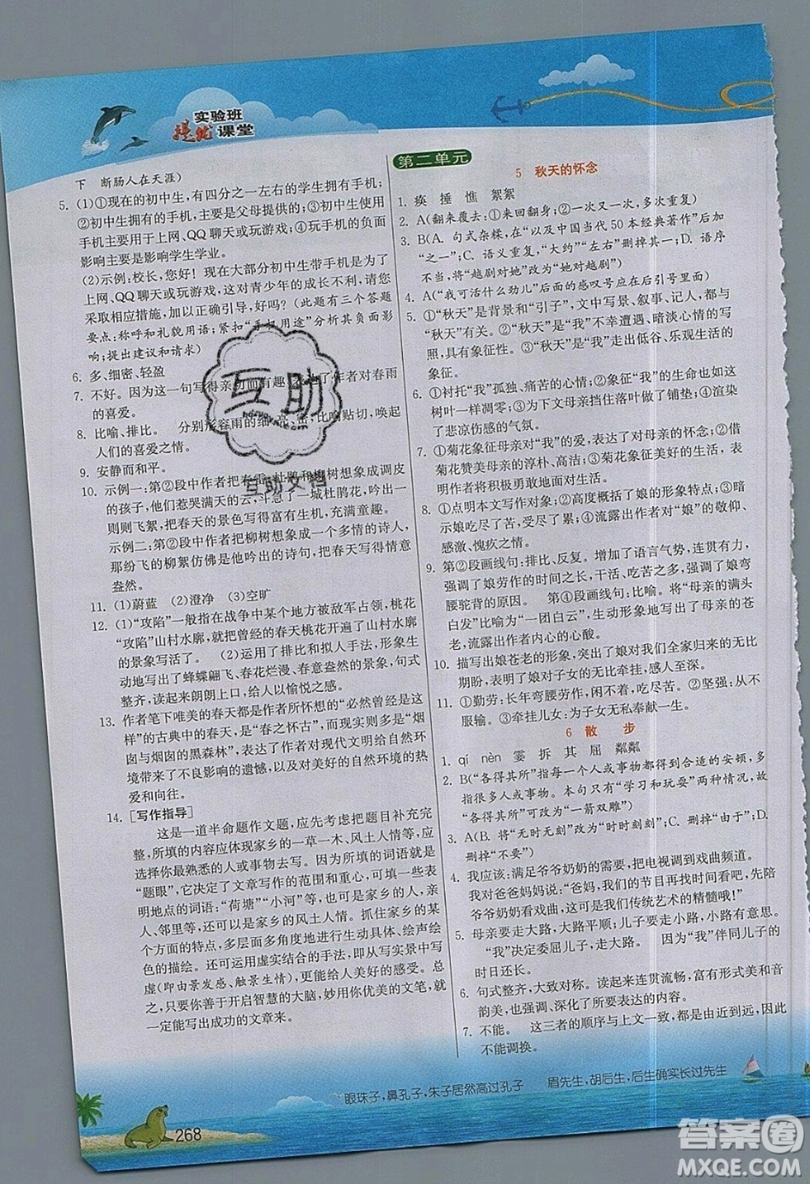 实验班
提优课堂
下　断肠人在天涯)
5. (1)①现在的初中生，有四分之一左右的学生拥有手机；
②初中生拥有的手机，主要是父母提供的；③初中生使用
手机主要用于上网、QQ聊天或玩游戏；④玩手机的负面
影响主要是影响学习和影响健康。
(2)示例：校长，您好！现在大部分初中生带手机是为了
上网、QQ聊天或玩游戏，这对青少年的成长不利，请您
采取相应措施，加以正确引导，好吗？(此题有三个答题
要点：称呼和礼貌用语；紧扣“ 用途”分析其负面影
响；提出建议和请求)
6. 多、细密、轻盈
7. 不好。因为这一句写得亲切而有趣， 了作者对春雨
的喜爱。
8. 比喻、排比。　分别形容雨的细、亮、密，比喻贴切，唤起
人们的喜爱之情。
9. 安静而和平。
10. 示例一：第②段中作者把春雷、杜鹃和柳树想象成调皮
的孩子，他们惹哭满天的云，下 一城杜鹃花，吟出一
则则飞絮，把春天的景色写得富有生机，充满童趣。
示例二：第②段中作者把柳树想象成一个多情的诗人，
那飞扬的柳絮仿佛是他吟出的诗句，把春天写得诗意
盎然。
11. (1)蔚蓝　(2)澄净　(3)空旷
12. (1)“攻陷”一般指在战争中某个地方被敌军占领，桃花
“攻陷”山村水廓，就把曾经的春天桃花开遍了山村水廓
的景象写活了。　(2)运用了排比和拟人手法，形象生
动地写出了蜂蝶翩飞、春花烂漫、春意盎然的景象，句式
整齐，读起来朗朗上口，给人以愉悦之感。
13. 作者笔下唯美的春天都是作者想象的“必然曾经是这
样的”古典中的春天，是“春之怀古”，而现实则多是“烟
囱与烟囱的黑森林”，表达了作者对现代文明给自然环
境带来了不良影响的遗憾，以及对美好大自然、自然环
境的爱和向往。
14. [写作指导]
这是一道半命题作文题，应先考虑把题目补充完
整，所填的内容应体现家乡的一草一木、风土人情等，选
择你最熟悉的人或事物去写。因为所填的词语就是
“题眼”，它决定了文章写作的范围和重心，可以填上表
明地点的词语：“荷塘”“小河”等，也可以写自己家乡的
人、邻里等，还可以是家乡的风土人情。抓住家乡各个
方面的特点，多层次、多侧面，由点到面，具体生动、绘声绘
色的描绘。文中还可以运用虚实结合的手法，从写实景中写
虚(即由景发感、触景生情)，给人美好的感受。总
之，同学们要善于开启智慧的大脑，妙用你优美的文笔，就
一定能写出成功的文章来。
第二单元
5　秋天的怀念
1. 痪　捶　憔　絮絮
2. A(翻来覆去：①来回翻身；②一次又一次，多次重复)
3. B(A. 句式杂糅，在“以及中国当代50本经典著作”后加
“之一”；C. 语义重复，“大约”“左右”删掉其一；D. 语序
不当，将“越剧对她”改为“她对越剧”)
4. A(“我可活什么劲儿”后面的感叹号应在后引号里面)
5. ①“秋天”是背景和“引子”，文中写景、叙事、记人，都与
“秋天”有关。②“秋天”是“我”不幸遭遇、暗淡心情的写
照，具有象征性。③“秋天”是“我”走出低谷、乐观生活的
象征。
6. ①衬托“我”孤独、痛苦的心情；②象征“我”的生命也如这
树叶一样凋零；③为下文母亲挡住窗户做了铺垫；④渲染
了悲凉伤感的气氛。
7. ①菊花象征母亲对“我”的爱，表达了对母亲的怀念；②借
菊花赞美母亲的淳朴、高洁；③菊花象征旺盛的生命力，表
明作者将积极勇敢地面对生活。
8. ①点明本文写作对象；②高度概括了娘的形象特点；③暗
示娘吃尽了苦，受尽了累；④流露出作者对“娘”的敬仰、
感激、愧疚之情。
9. 第②段画线句：排比、反复。增加了语言气势，连贯有力，
强调了娘劳作的时间之长，干活、吃苦之多，强调了娘弯
腰驼背的原因。　第④段画线句：形象地把母亲的满头
白发比喻为“一团白云”，生动形象地写出了母亲的苍
老，流露出作者内心的心酸。
10. 描写出娘苍老的形象，突出娘对我们全家归来的无比
期盼，表现了母亲对子女的无比牵挂，感人至深。
11. ①勤劳：长年弯腰劳作，闲不着，吃尽苦。②坚强：从不
服输。③牵挂儿女：为子女无私奉献一生。
6　散　步
1. qí　nèn　霎　拆　其　屈　粼粼
2. B(“各得其所”指每一个人或事物都得到合适的安顿，多
指很多人或事物。本句只有“学习和玩耍”两种，故
“各得其所”可改为“一箭双雕”)
3. A(B. 将“无时无刻”改为“时时刻刻”；C. 删掉“由于”；D.
删掉“不要”)
4. 我应该：满足爷爷奶奶的需要，把电视调到戏曲频道。
我对爸爸妈妈说：“爸妈，我们有的是时间看节目，先陪
爷爷奶奶看戏曲，这可是我们传统艺术的精髓哦！”
5. 母亲要走大路，大路平顺；儿子要走小路，小路有意思。
“我”决定委屈儿子，走大路。　因为“我”伴同儿子的
时日还长。
6. 句式整齐，大致对称。读起来连贯流畅，富有形式美和音
韵美，也强调、深化了所要表达的内容。
7. 不能。　这三者的顺序与上文一致，都是由近到远，不
能调换。
眼珠子，鼻孔子，朱子居然高过孔子　眉先生，胡后生，后生确实长过先生
268
互助
互助文档
答案圈
MXQE.COM